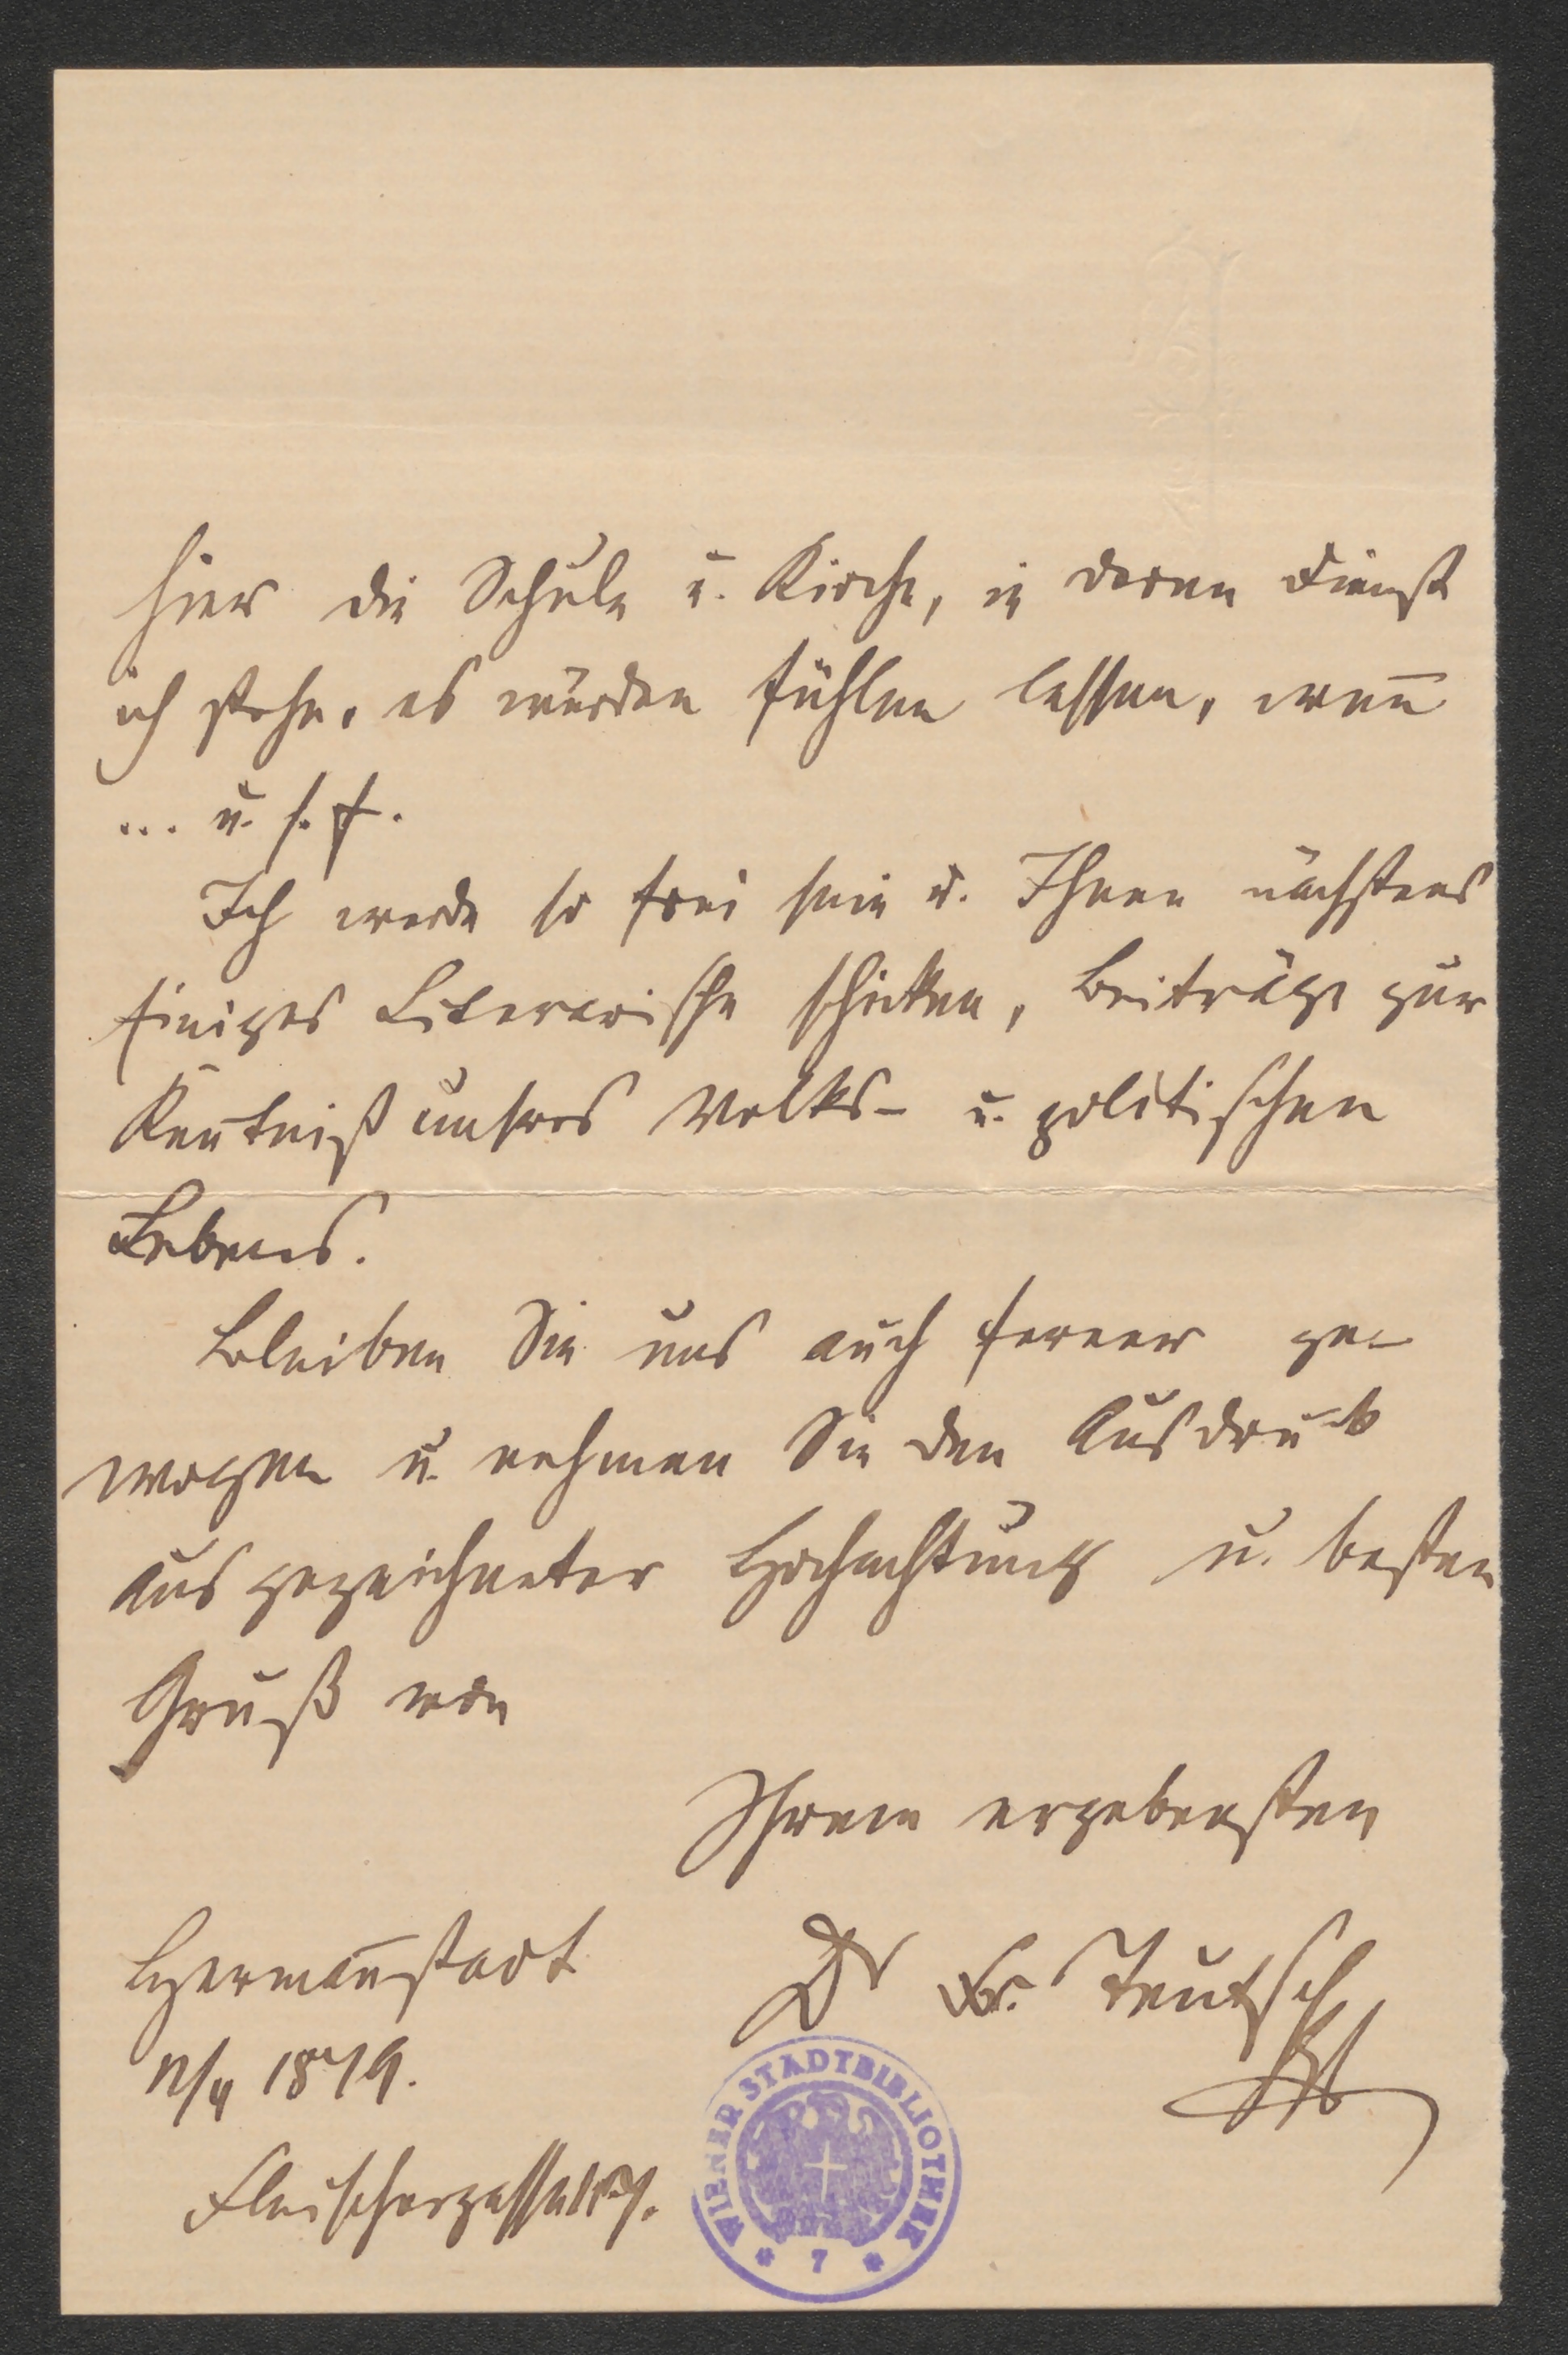 hier die Schule u. Kirche, in deren Dienst
ich stehe, es würden fühlen lassen, weñ
... u. s. f.
Ich werde so frei sein u. Ihnen nächstens
einiges Literarische schicken, Beiträge zur
Keñtniß unsres Volks- u. politischen
Lebens.
Bleiben Sie uns auch ferner ge-
wogen u. nehmen Sie den Ausdruck
ausgezeichneter Hochachtung u. besten
Gruß von
Ihrem ergebensten
Hermañstadt
Dr Fr. Teutsch
1879.
Fleischergasse
WIENER STADTBIBLIOTHEK
* 7 *